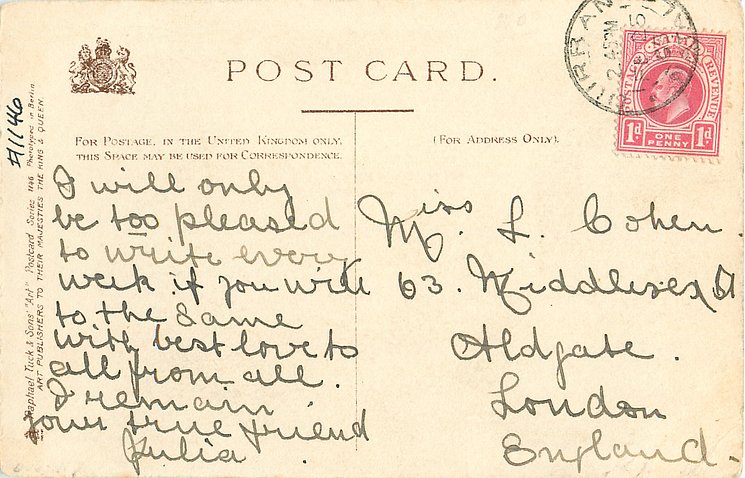 POST CARD.
FOR POSTAGE, IN THE UNITED KINGDOM ONLY,
THIS SPACE MAY BE USED FOR CORRESPONDENCE.
(FOR ADDRESS ONLY).
I will only
be too pleased
to write every
week if you will
to the same
with best love to
all from all.
I remain
your true friend
Julia
Miss. L. Cohen.
63. Middlesex St
Aldgate.
London
England.
#1146
Raphael Tuck & Sons' "Art" Postcard Series 1146 Phototyped in Berlin
ART PUBLISHERS TO THEIR MAJESTIES THE KING & QUEEN.
POSTAGE REVENUE
1d. ONE PENNY 1d.